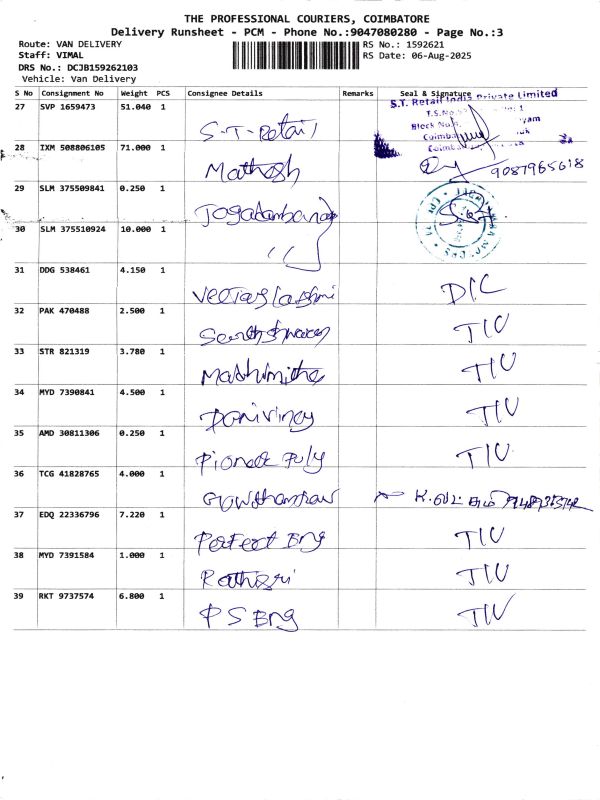 THE PROFESSIONAL COURIERS, COIMBATORE
Delivery Runsheet - PCM - Phone No.:9047080280 - Page No.:3
Route: VAN DELIVERY RS No.: 1592621
Staff: VIMAL RS Date: 06-Aug-2025
DRS No.: DCJB159262103
Vehicle: Van Delivery
S No Consignment No Weight PCS Consignee Details Remarks Seal & Signature
27 SVP 1659473 51.040 1 S-T-Retail S.T. Retail India Private Limited
28 IXM 508806105 71.000 1 Mathesh 9087965618
29 SLM 375509841 0.250 1
30 SLM 375510924 10.000 1 ,,
31 DDG 538461 4.150 1 D/C
32 PAK 470488 2.500 1 T/U
33 STR 821319 3.780 1 T/U
34 MYD 7390841 4.500 1 T/U
35 AMD 30811306 0.250 1 T/U
36 TCG 41828765 4.000 1
37 EDQ 22336796 7.220 1 Perfect Eng T/U
38 MYD 7391584 1.000 1 T/U
39 RKT 9737574 6.800 1 P S Eng T/U